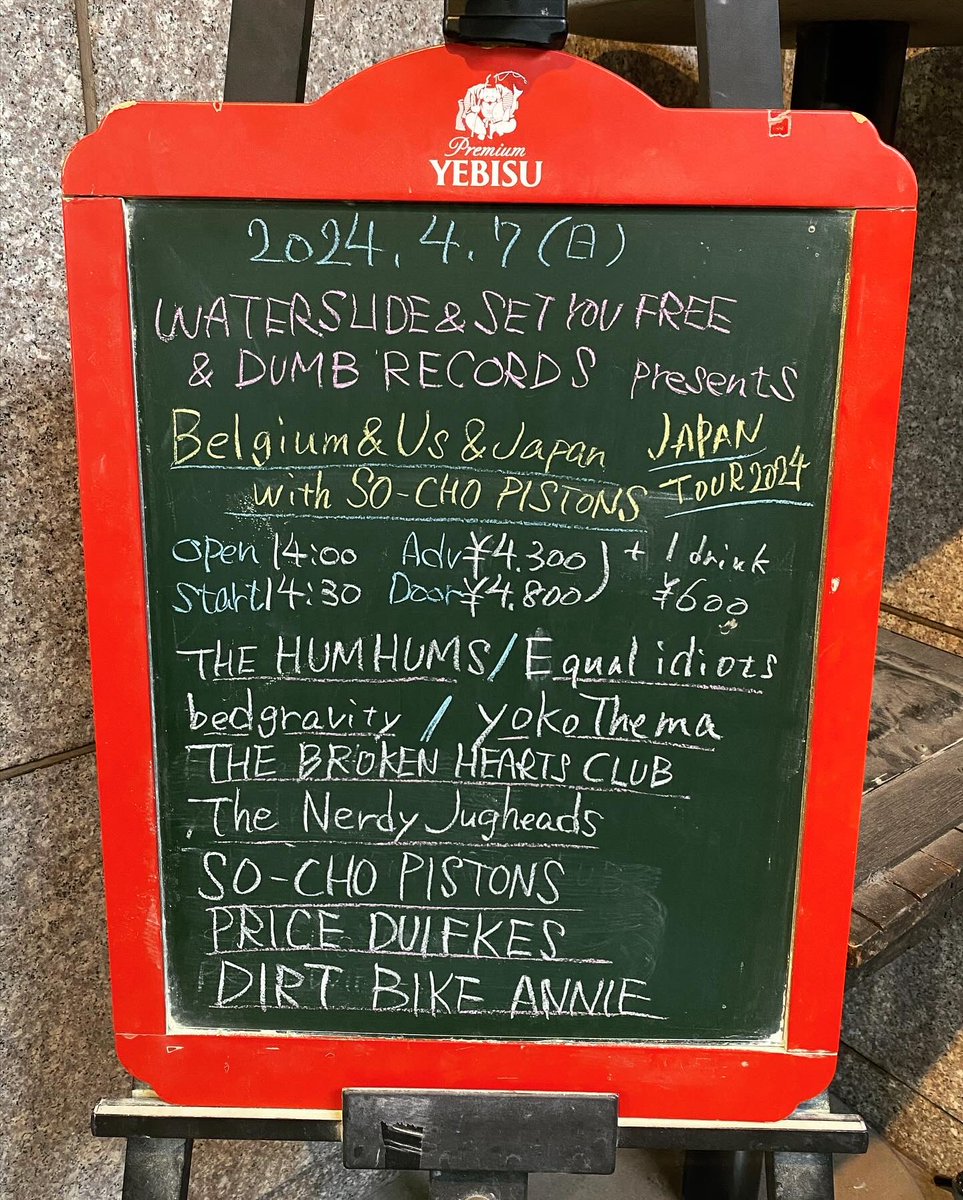 Premium
YEBISU
2024.4.7(日)
WATERSLIDE & SET YOU FREE
& DUMB RECORDS presents
Belgium & Us & Japan
with SO-CHO PISTONS
JAPAN
TOUR 2024
open 14:00 Adv ¥4.300) + 1 drink
Start 14:30 Door ¥4.800) ¥600
THE HUM HUMS / Equal idiots
bedgravity / yoko Thema
THE BROKEN HEARTS CLUB
The Nerdy Jugheads
SO-CHO PISTONS
PRICE DULEKES
DIRT BIKE ANNIE